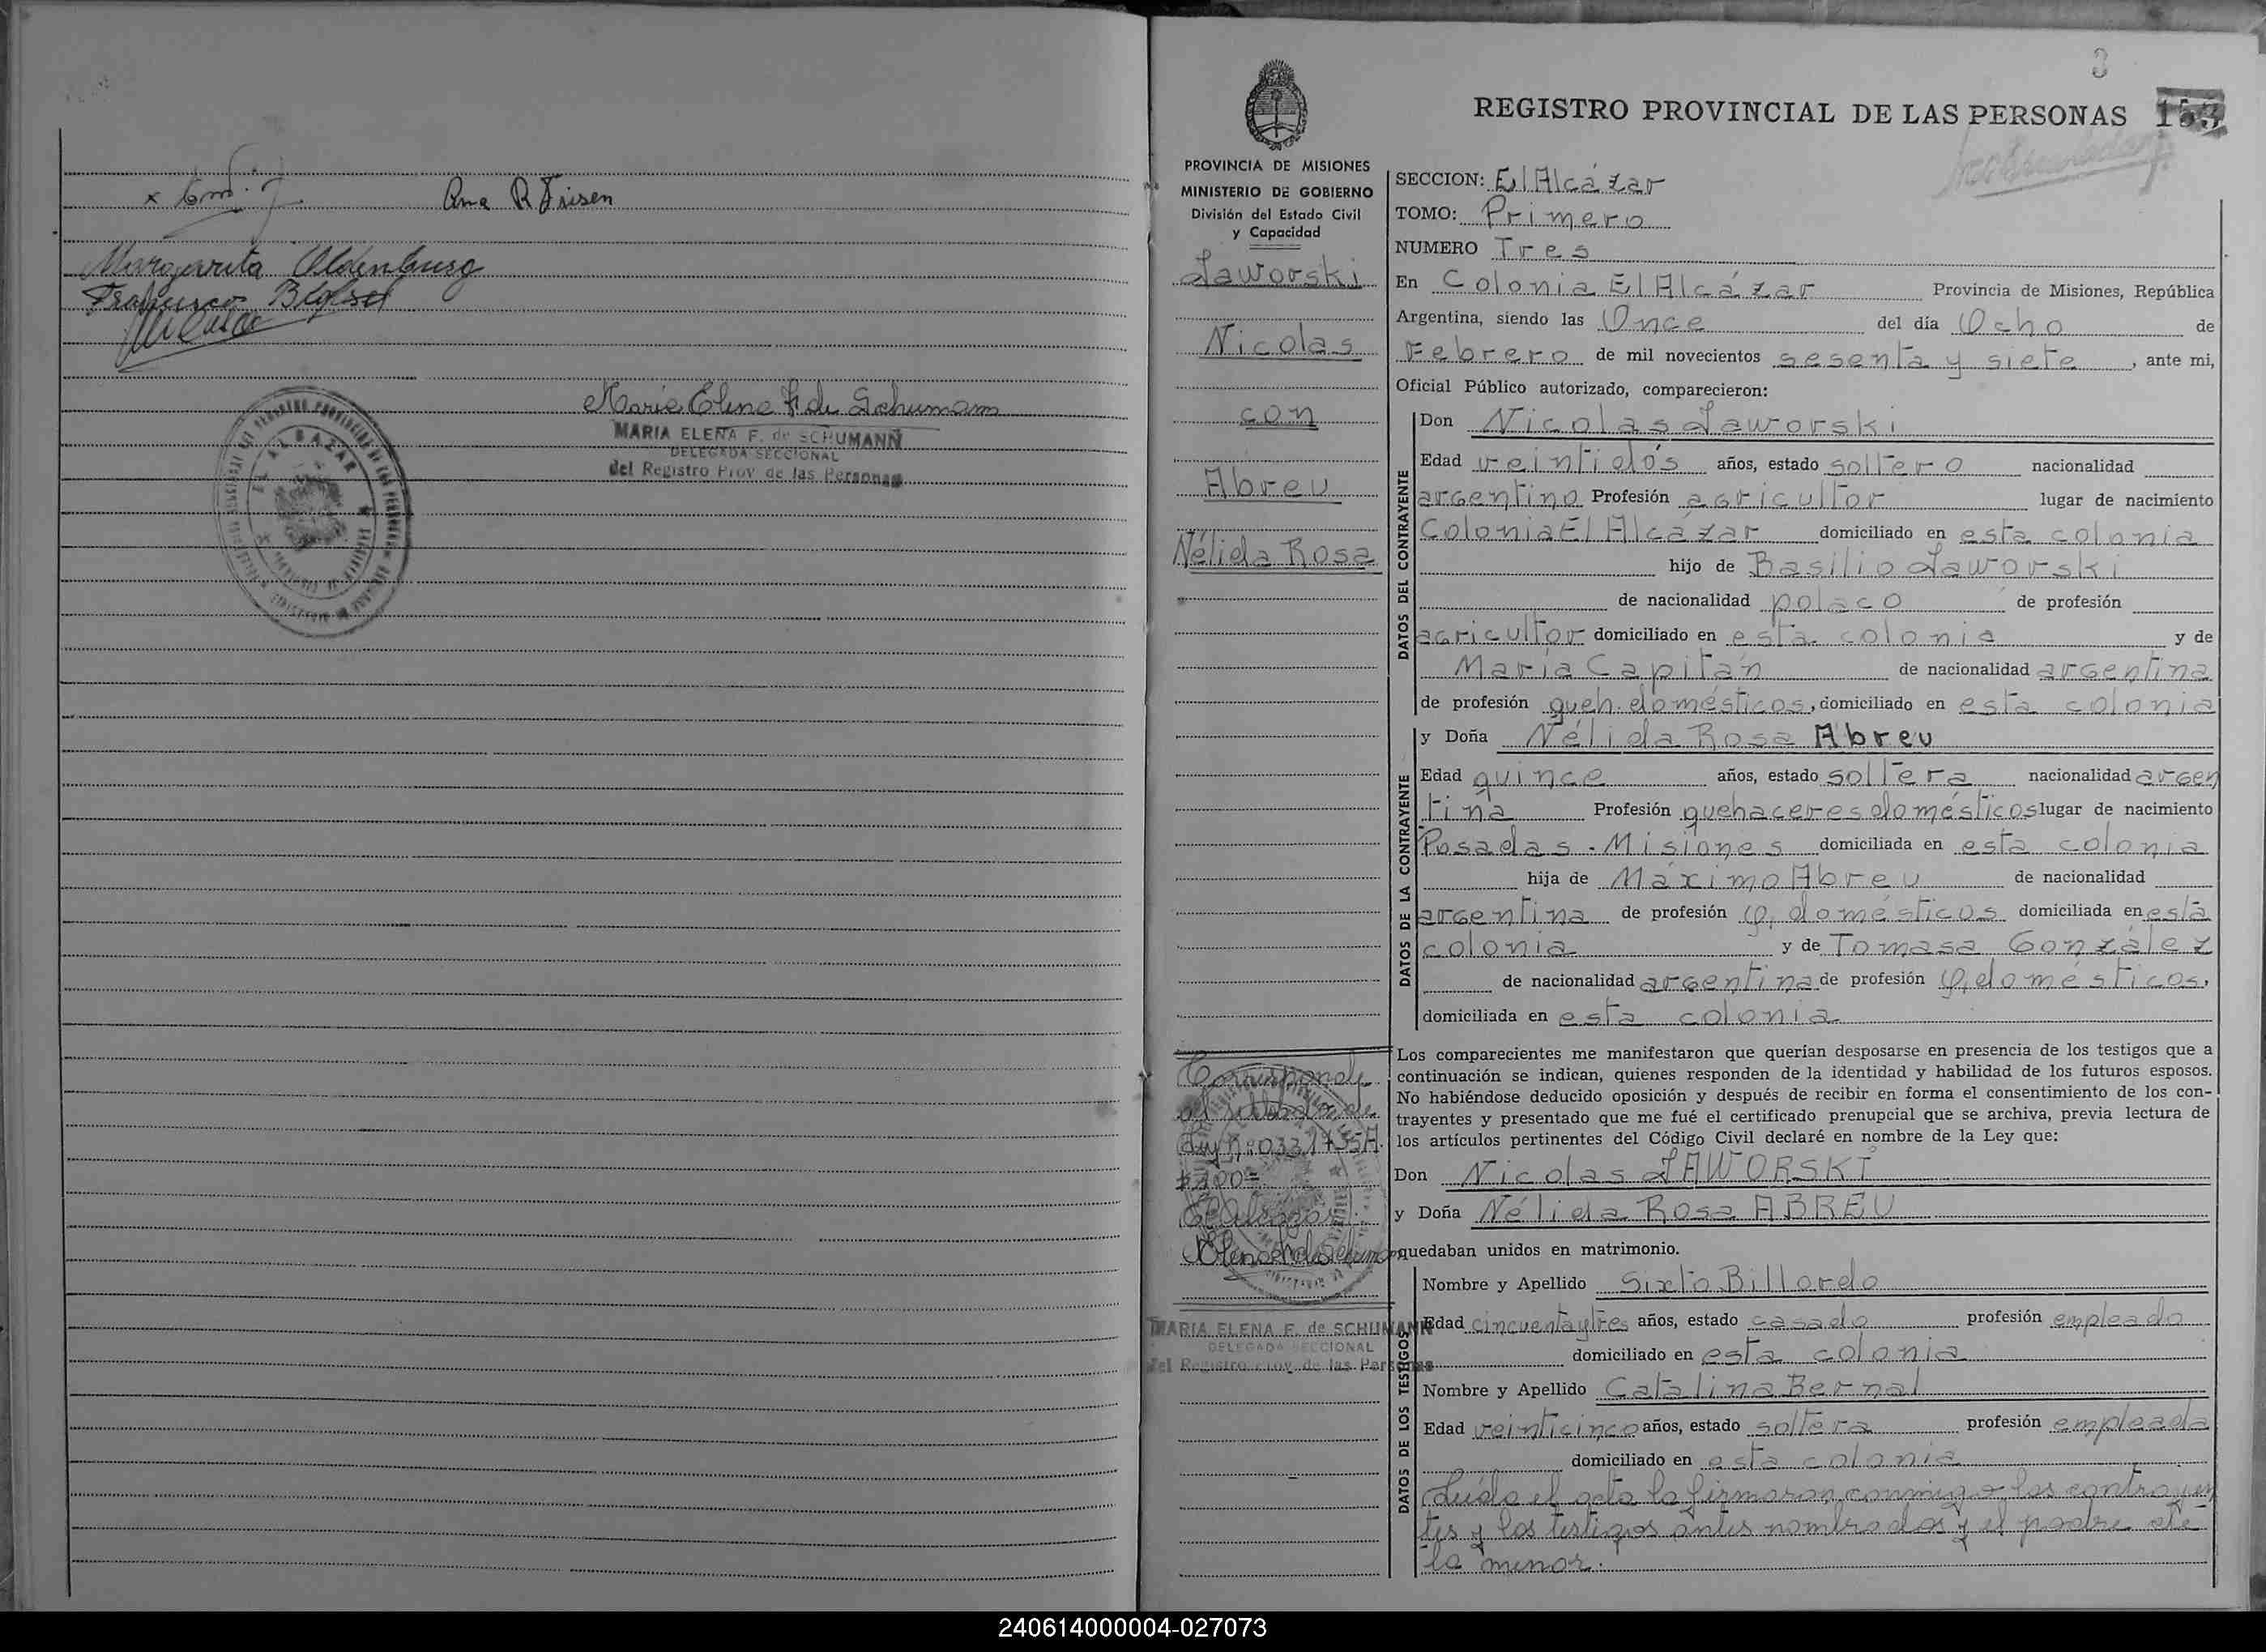 Ana R Frisen
Margarita Oldenburg
Francisco
Maria Elena F de Schumann
MARIA ELENA F. de SCHUMANN
DELEGADA SECCIONAL
del Registro Prov de las Personas
3
REGISTRO PROVINCIAL DE LAS PERSONAS 153
PROVINCIA DE MISIONES
MINISTERIO DE GOBIERNO
División del Estado Civil
y Capacidad
Jaworski
Nicolas
con
Abreu
Nélida Rosa
Corresponde
Ley Nº 0331735A.
$100=
MARIA ELENA F. de SCHUMANN
DELEGADA SECCIONAL
del Registro Prov. de las Personas
SECCION: El Alcázar
TOMO: Primero
NUMERO Tres
En Colonia El Alcázar Provincia de Misiones, República
Argentina, siendo las Once del día Ocho de
Febrero de mil novecientos sesenta y siete, ante mi,
Oficial Público autorizado, comparecieron:
DATOS DEL CONTRAYENTE
Don Nicolas Jaworski
Edad veintidós años, estado soltero nacionalidad
argentino Profesión agricultor lugar de nacimiento
Colonia El Alcázar domiciliado en esta colonia
hijo de Basilio Jaworski
de nacionalidad polaco de profesión
agricultor domiciliado en esta colonia y de
María Capitán de nacionalidad argentina
de profesión queh. domésticos, domiciliado en esta colonia
DATOS DE LA CONTRAYENTE
y Doña Nélida Rosa Abreu
Edad quince años, estado soltera nacionalidad argen
tina Profesión quehaceres domésticos lugar de nacimiento
Posadas - Misiones domiciliada en esta colonia
hija de Máximo Abreu de nacionalidad
argentina de profesión q. domésticos domiciliada en esta
colonia y de Tomasa González
de nacionalidad argentina de profesión q. domésticos,
domiciliada en esta colonia
Los comparecientes me manifestaron que querían desposarse en presencia de los testigos que a
continuación se indican, quienes responden de la identidad y habilidad de los futuros esposos.
No habiéndose deducido oposición y después de recibir en forma el consentimiento de los con-
trayentes y presentado que me fué el certificado prenupcial que se archiva, previa lectura de
los artículos pertinentes del Código Civil declaré en nombre de la Ley que:
Don Nicolas JAWORSKI
y Doña Nélida Rosa ABREU
quedaban unidos en matrimonio.
DATOS DE LOS TESTIGOS
Nombre y Apellido Sixto Billordo
Edad cincuenta y tres años, estado casado profesión empleado
domiciliado en esta colonia
Nombre y Apellido Catalina Bernal
Edad veinticinco años, estado soltera profesión empleada
domiciliado en esta colonia
Leída el acta la firmaron conmigo los contrayen
tes y los testigos antes nombrados y el padre de
la menor.
240614000004-027073